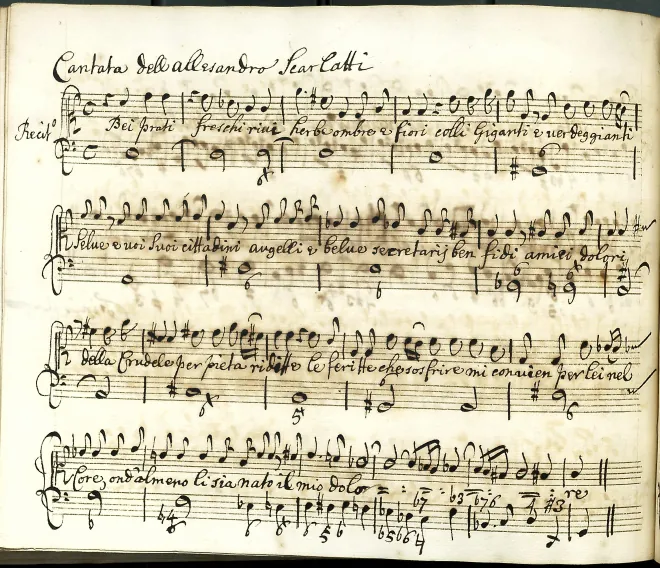 Cantata dell allesandro Scarlatti
Recit.º
Bei prati freschi rivi herbe ombre e fiori colli Giganti e verdeggianti
selve e voi suoi cittadini augelli e belve secretarij ben fidi amici dolori
della Crudele per pieta riditte le feritte che sosfrire mi convien per lei nel
Core, ond'almeno li sia nato il mio dolo = re